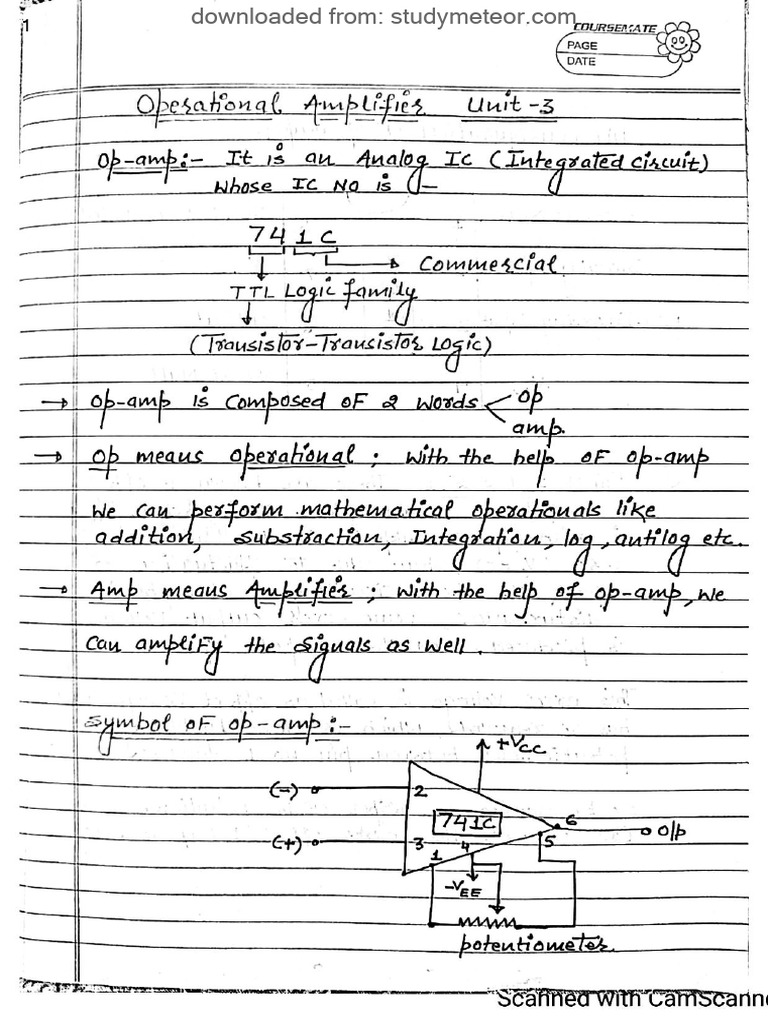 downloaded from: studymeteor.com
1
COURSEMATE
PAGE
DATE
Operational Amplifier Unit-3
Op-amp:- It is an Analog IC (Integrated circuit)
whose IC No is -
741C
Commercial
TTL Logic family
(Transistor-Transistor Logic)
→ Op-amp is composed of 2 words < op
amp.
→ Op means operational ; with the help of op-amp
we can perform mathematical operationals like
addition, substraction, Integration, log, antilog etc.
→ Amp means Amplifier ; with the help of op-amp, we
can amplify the signals as well.
Symbol of op-amp:-
+VCC
(-) 2
741C 6 o/p
(+) 3 1 4 5
-VEE
potentiometer.
Scanned with CamScanne